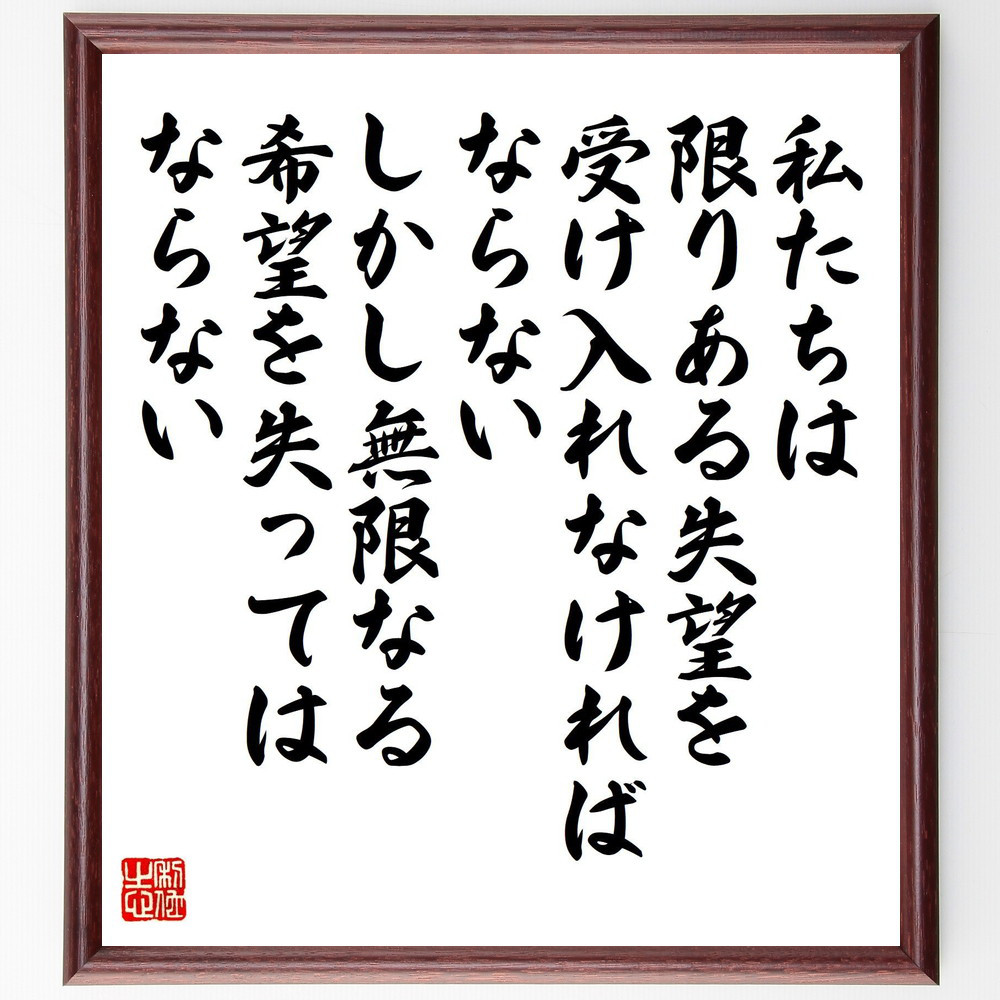 私たちは
限りある失望を
受け入れなければ
ならない
しかし無限なる
希望を失っては
ならない